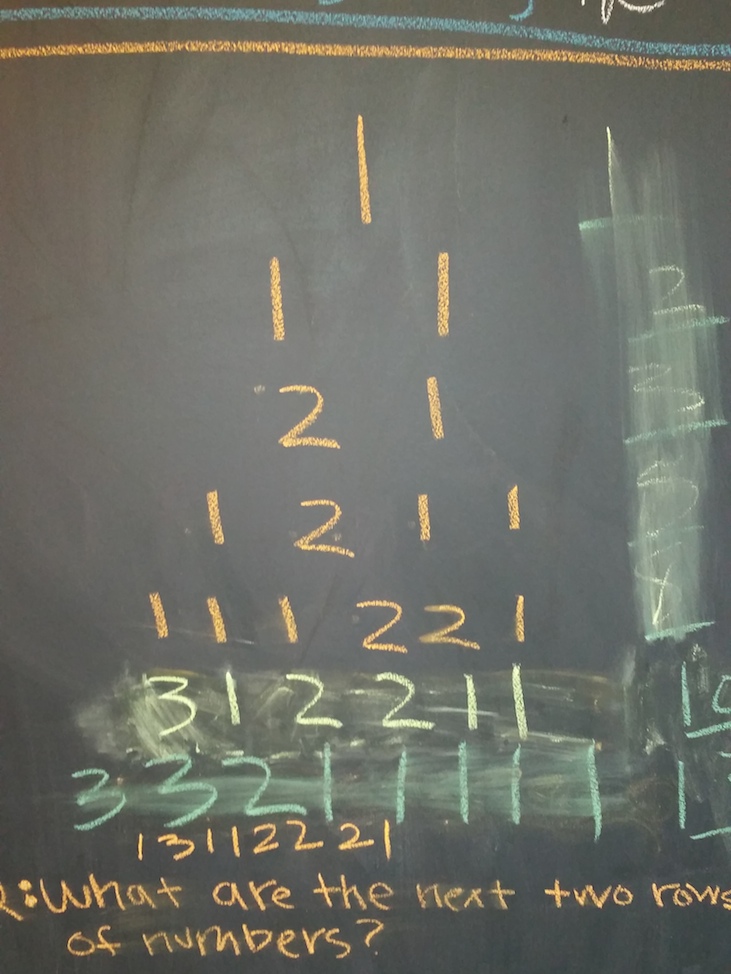 1
1 1
2 1
1 2 1 1
1 1 1 2 2 1
3 1 2 2 1 1
3 3 2 1 1 1 1 1
13112221
Q: What are the next two rows
of numbers?
2
3